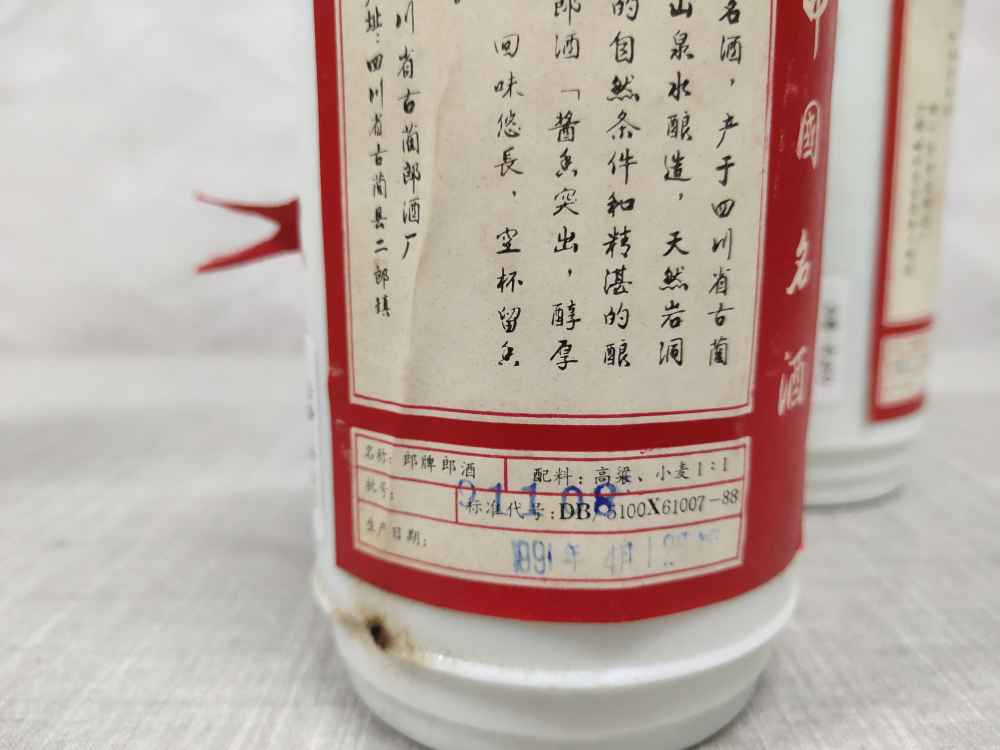 中国名酒
名酒，产于四川省古蔺
山泉水酿造，天然岩洞
的自然条件和精湛的酿
郎酒「酱香突出，醇厚
回味悠長，空杯留香
川省古蔺郎酒厂
址：四川省古蔺县二郎镇
名称：郎牌郎酒
配料：高粱、小麦1：1
批号：
911108
标准代号：DB/5100X61007-88
生产日期：
1991年 4月1